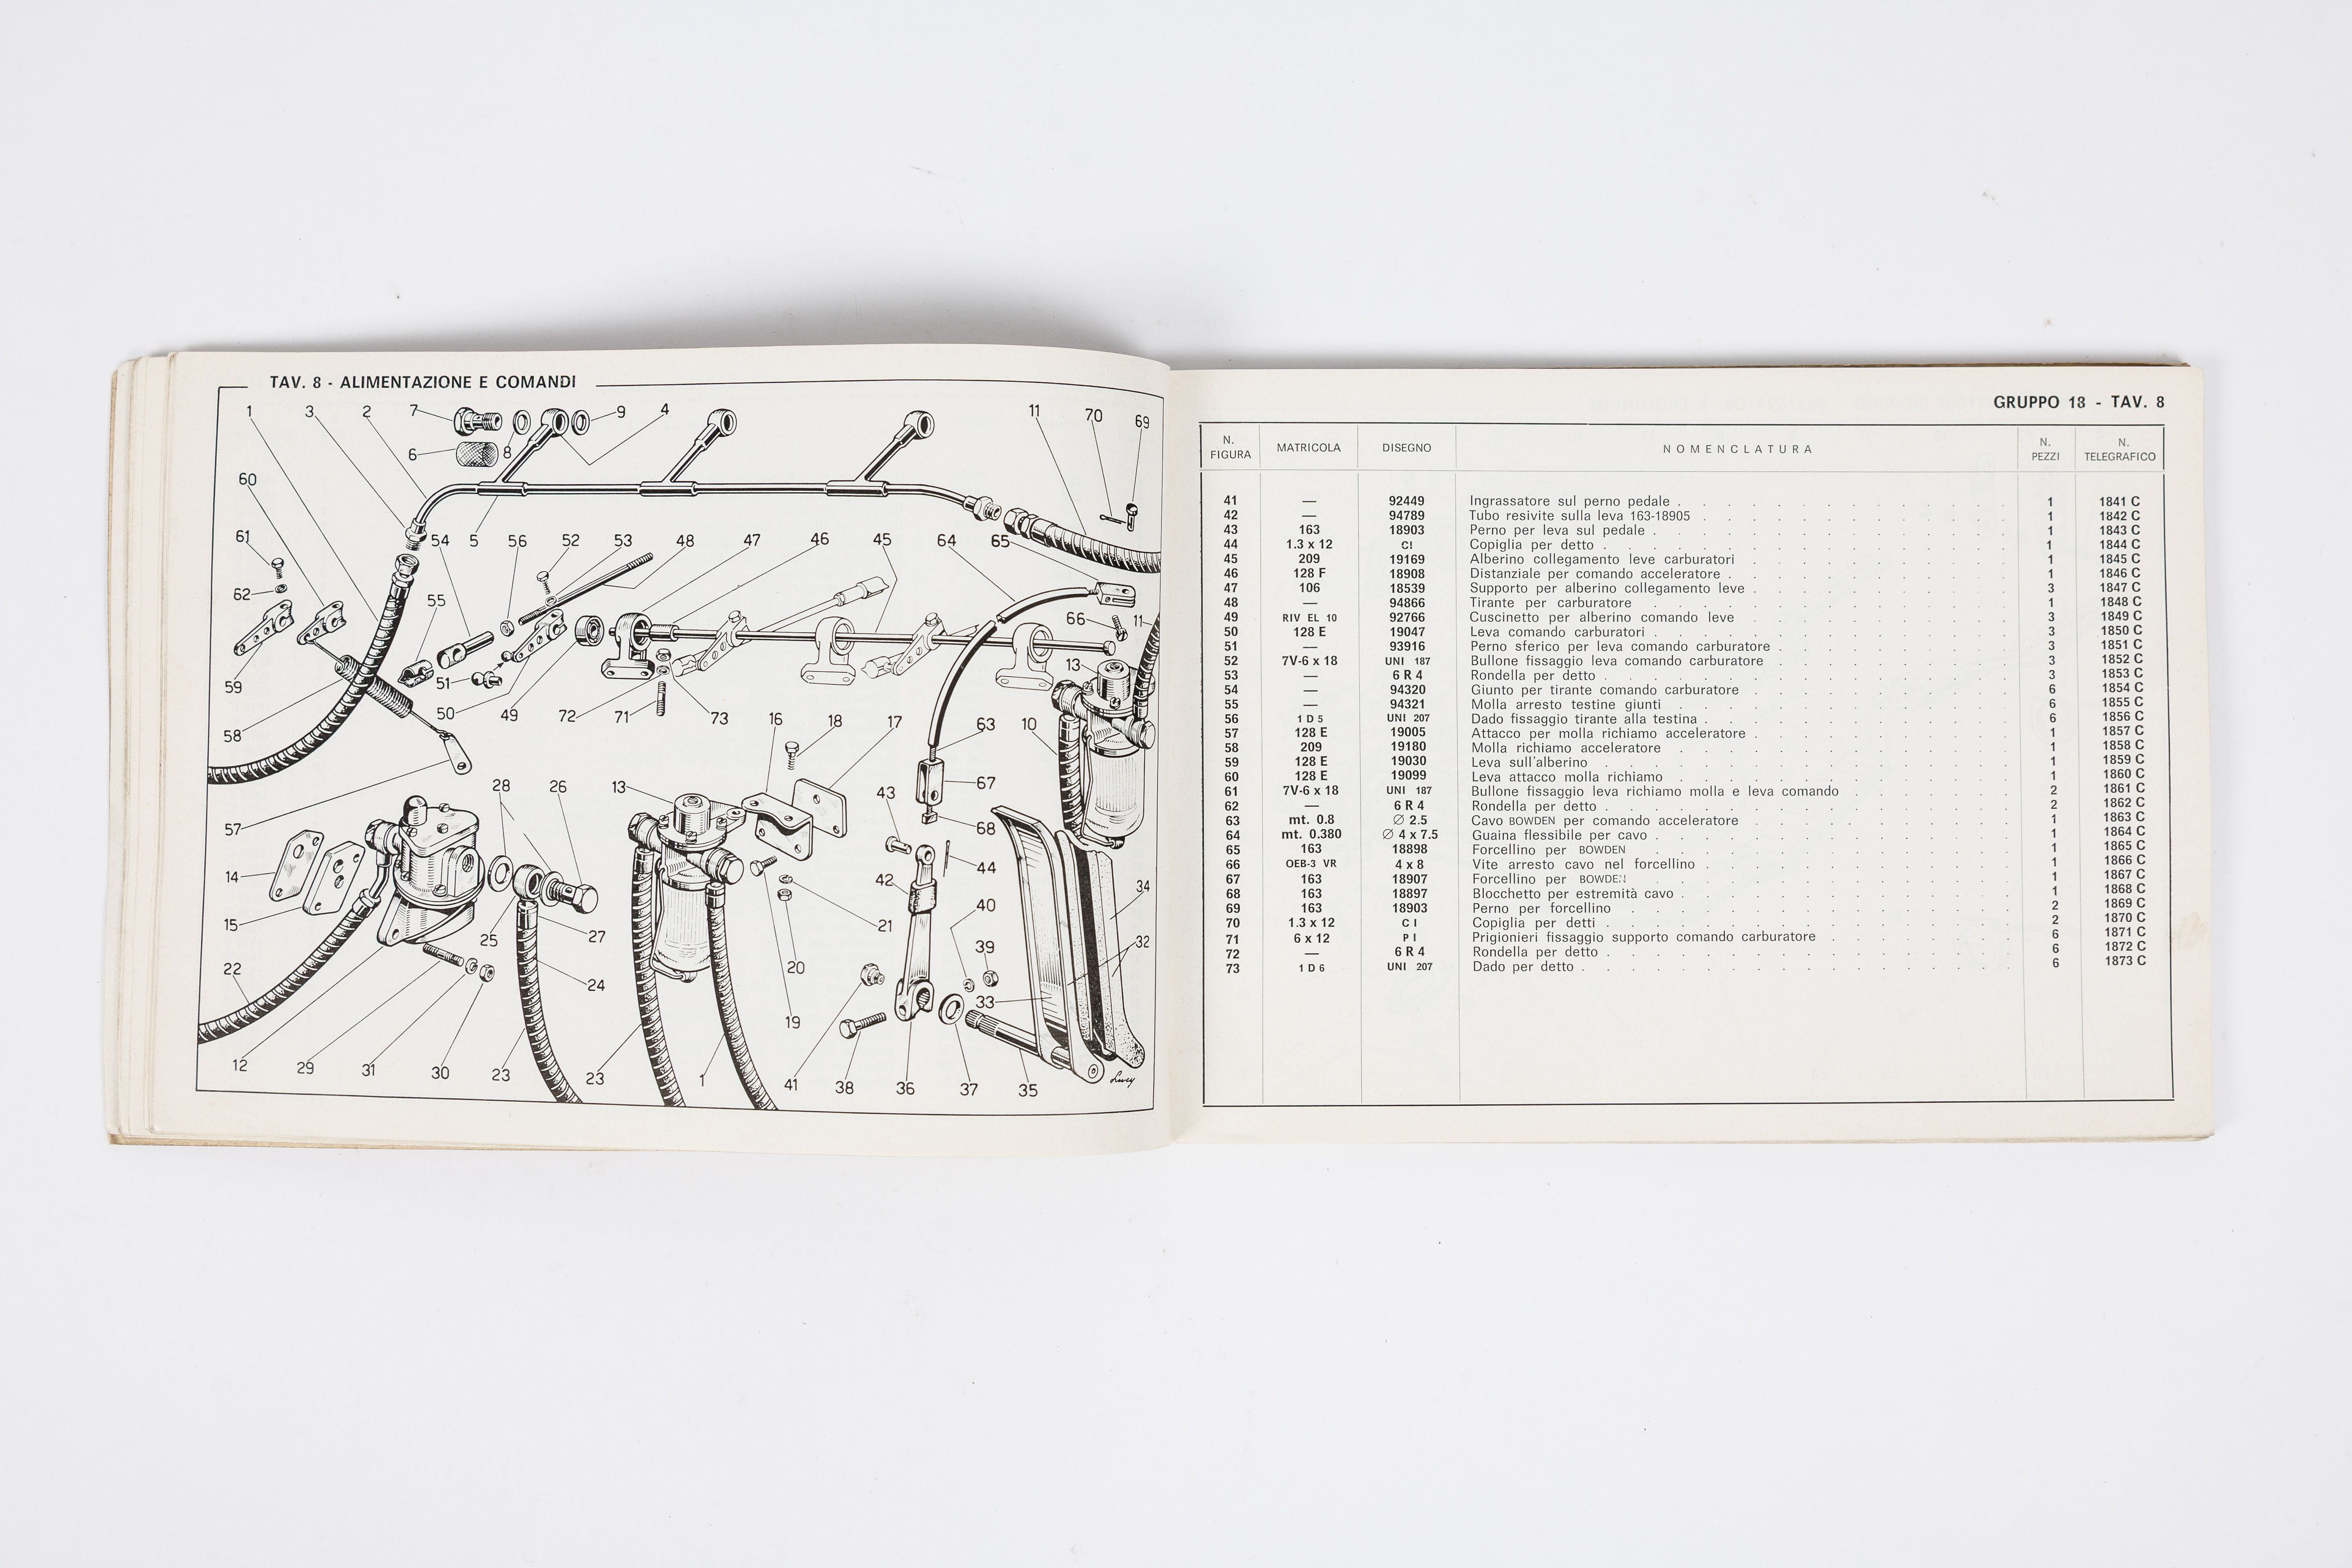 TAV. 8 - ALIMENTAZIONE E COMANDI
1 3 2 7 9 4 11 70 69
6 8
60
61 54 5 56 52 53 48 47 46 45 64 65
62 55 66 11
59 51 13
58 50 49 72 71 73 16 18 17 63 10
57 28 26 13 43 67
68
14 42 44 34
15 25 27 21 40 32
22 24 20 39
19 33
12 29 31 30 23 23 1 41 38 36 37 35
GRUPPO 18 - TAV. 8
N. FIGURA MATRICOLA DISEGNO NOMENCLATURA N. PEZZI N. TELEGRAFICO
41 — 92449 Ingrassatore sul perno pedale 1 1841 C
42 — 94789 Tubo resivite sulla leva 163-18905 1 1842 C
43 163 18903 Perno per leva sul pedale 1 1843 C
44 1.3 x 12 CI Copiglia per detto 1 1844 C
45 209 19169 Alberino collegamento leve carburatori 1 1845 C
46 128 F 18908 Distanziale per comando acceleratore 1 1846 C
47 106 18539 Supporto per alberino collegamento leve 3 1847 C
48 — 94866 Tirante per carburatore 1 1848 C
49 RIV EL 10 92766 Cuscinetto per alberino comando leve 3 1849 C
50 128 E 19047 Leva comando carburatori 3 1850 C
51 — 93916 Perno sferico per leva comando carburatore 3 1851 C
52 7V-6 x 18 UNI 187 Bullone fissaggio leva comando carburatore 3 1852 C
53 — 6 R 4 Rondella per detto 3 1853 C
54 — 94320 Giunto per tirante comando carburatore 6 1854 C
55 — 94321 Molla arresto testine giunti 6 1855 C
56 1 D 5 UNI 207 Dado fissaggio tirante alla testina 6 1856 C
57 128 E 19005 Attacco per molla richiamo acceleratore 1 1857 C
58 209 19180 Molla richiamo acceleratore 1 1858 C
59 128 E 19030 Leva sull'alberino 1 1859 C
60 128 E 19099 Leva attacco molla richiamo 1 1860 C
61 7V-6 x 18 UNI 187 Bullone fissaggio leva richiamo molla e leva comando 2 1861 C
62 — 6 R 4 Rondella per detto 2 1862 C
63 mt. 0.8 ∅ 2.5 Cavo BOWDEN per comando acceleratore 1 1863 C
64 mt. 0.380 ∅ 4 x 7.5 Guaina flessibile per cavo 1 1864 C
65 163 18898 Forcellino per BOWDEN 1 1865 C
66 OEB-3 VR 4 x 8 Vite arresto cavo nel forcellino 1 1866 C
67 163 18907 Forcellino per BOWDEN 1 1867 C
68 163 18897 Blocchetto per estremità cavo 1 1868 C
69 163 18903 Perno per forcellino 2 1869 C
70 1.3 x 12 C I Copiglia per detti 2 1870 C
71 6 x 12 P I Prigionieri fissaggio supporto comando carburatore 6 1871 C
72 — 6 R 4 Rondella per detto 6 1872 C
73 1 D 6 UNI 207 Dado per detto 6 1873 C